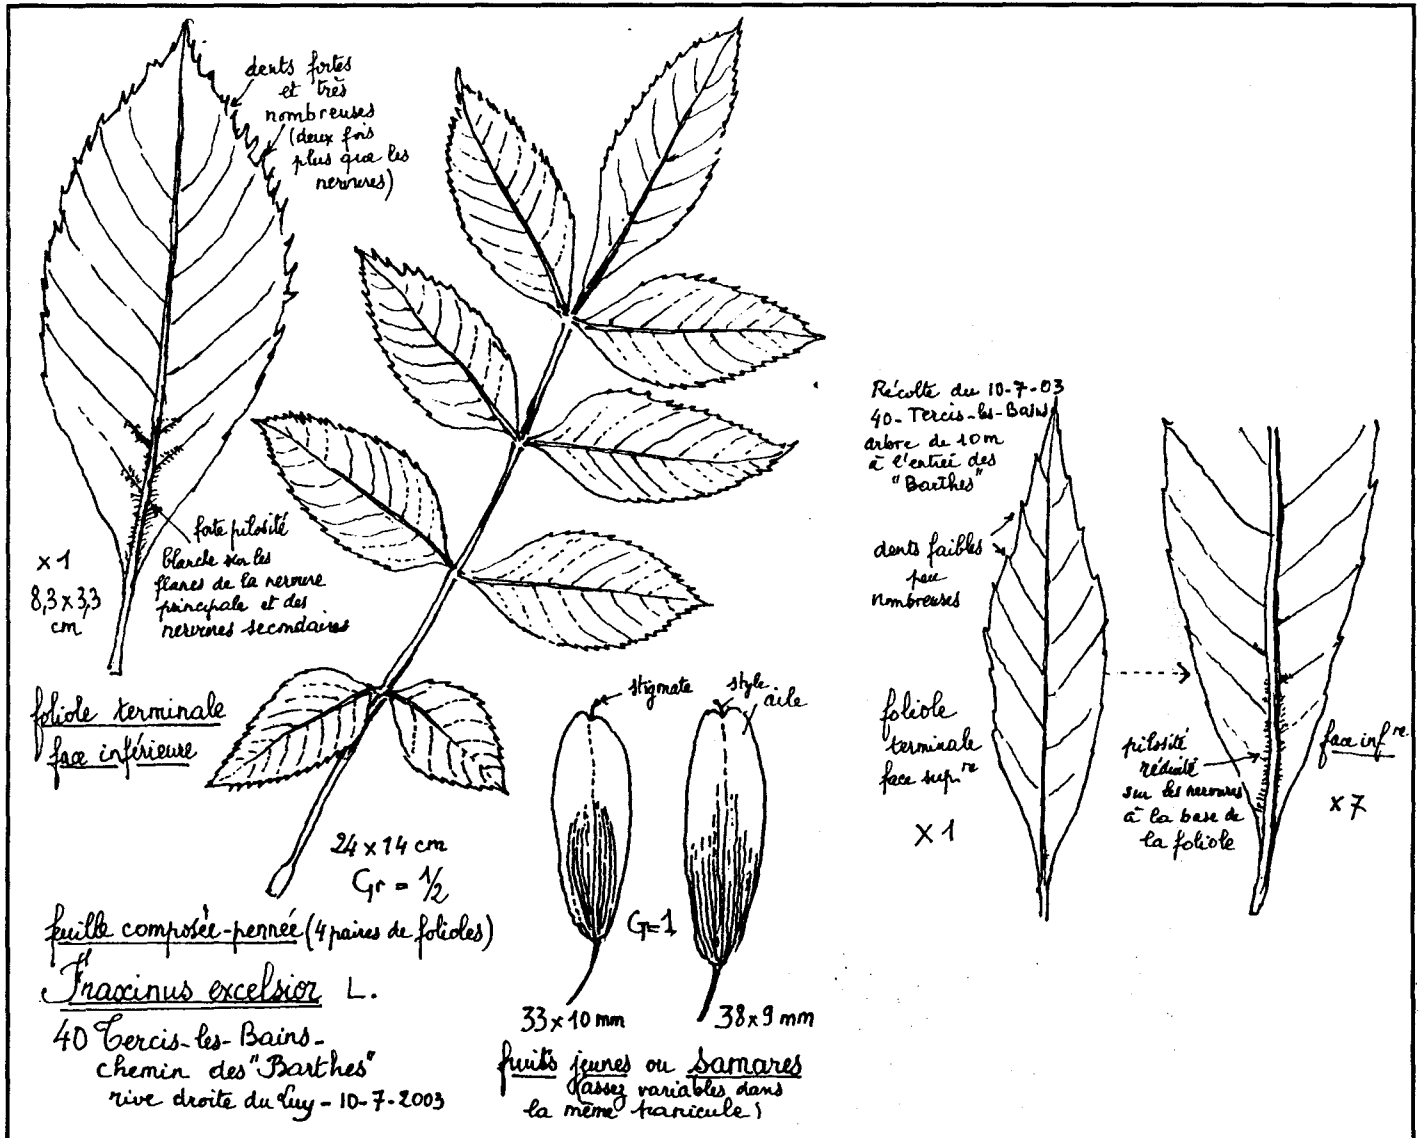 dents fortes
et très
nombreuses
(deux fois
plus que les
nervures)
forte pilosité
blanche sur les
flancs de la nervure
principale et des
nervures secondaires
x 1
8,3 x 3,3
cm
foliole terminale
face inférieure
24 x 14 cm
Gr = 1/2
feuille composée-pennée (4 paires de folioles)
Fraxinus excelsior L.
40 Tercis-les-Bains-
chemin des "Barthes"
rive droite du Luy - 10-7-2003
stigmate
style
aile
G=1
33 x 10 mm
38 x 9 mm
fruits jeunes ou samares
(assez variables dans
la même panicule)
Récolte du 10-7-03
40-Tercis-les-Bains
arbre de 10 m
à l'entrée des
"Barthes"
dents faibles
peu
nombreuses
foliole
terminale
face supre
X 1
pilosité
réduite
sur les nervures
à la base de
la foliole
face infre
x 7